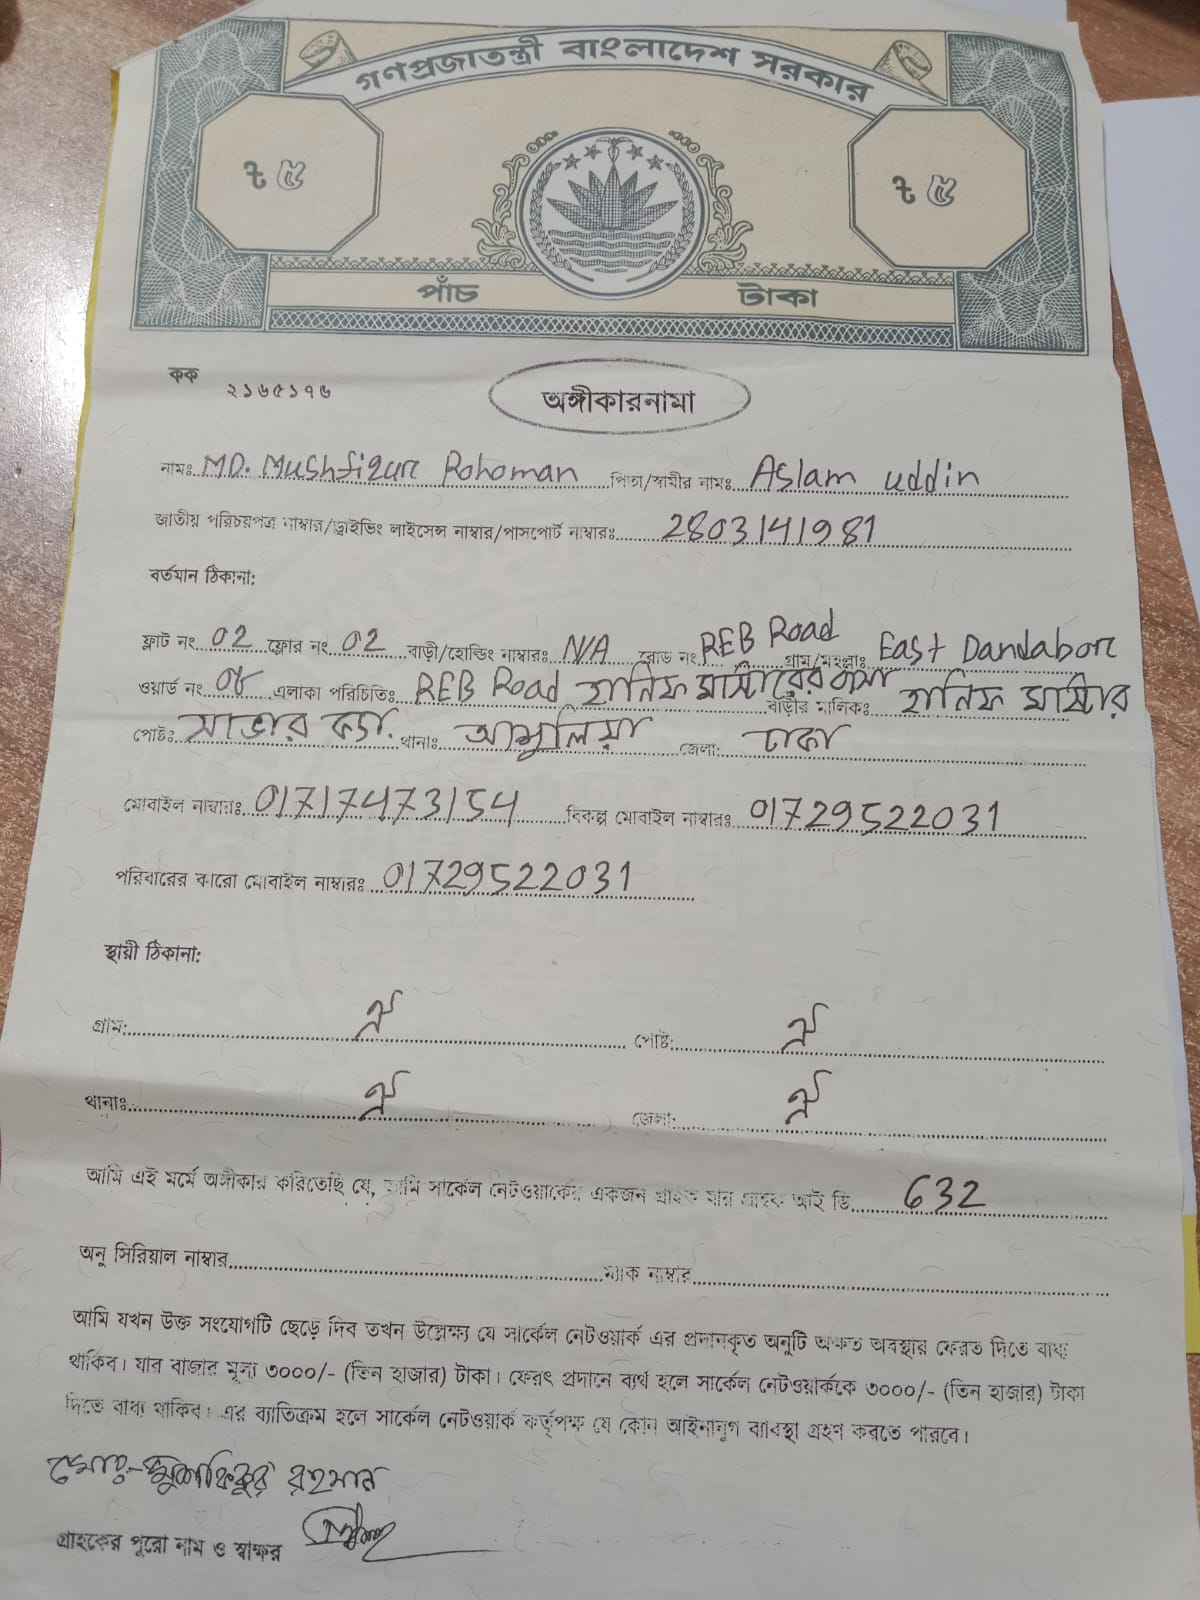 গণপ্রজাতন্ত্রী বাংলাদেশ সরকার
৳ ৫ ৳ ৫
পাঁচ টাকা
কক ২১৬৫১৭৬
অঙ্গীকারনামা
নামঃ MD. Mushfiqur Rohoman পিতা/স্বামীর নামঃ Aslam uddin
জাতীয় পরিচয়পত্র নাম্বার/ড্রাইভিং লাইসেন্স নাম্বার/পাসপোর্ট নাম্বারঃ 2803141981
বর্তমান ঠিকানা:
ফ্লাট নং 02 ফ্লোর নং 02 বাড়ী/হোল্ডিং নাম্বারঃ N/A রোড নং REB Road গ্রাম/মহল্লাঃ East Dandabore
ওয়ার্ড নং 08 এলাকা পরিচিতিঃ REB Road হানিফ মাস্টারের বাসা বাড়ীর মালিকঃ হানিফ মাষ্টার
পোষ্টঃ সাভার ক্যা. থানাঃ আশুলিয়া জেলা: ঢাকা
মোবাইল নাম্বারঃ 01717473154 বিকল্প মোবাইল নাম্বারঃ 01729522031
পরিবারের কারো মোবাইল নাম্বারঃ 01729522031
স্থায়ী ঠিকানা:
গ্রাম: ঐ পোষ্ট: ঐ
থানাঃ ঐ জেলা: ঐ
আমি এই মর্মে অঙ্গীকার করিতেছি যে, আমি সার্কেল নেটওয়ার্কের একজন গ্রাহক যার গ্রাহক আই ডি 632
অনু সিরিয়াল নাম্বার ম্যাক নাম্বার
আমি যখন উক্ত সংযোগটি ছেড়ে দিব তখন উল্লেক্ষ্য যে সার্কেল নেটওয়ার্ক এর প্রদানকৃত অনুটি অক্ষত অবস্থায় ফেরত দিতে বাধ্য
থাকিব। যার বাজার মূল্য ৩০০০/- (তিন হাজার) টাকা। ফেরৎ প্রদানে ব্যর্থ হলে সার্কেল নেটওয়ার্ককে ৩০০০/- (তিন হাজার) টাকা
দিতে বাধ্য থাকিব। এর ব্যাতিক্রম হলে সার্কেল নেটওয়ার্ক কর্তৃপক্ষ যে কোন আইনানুগ ব্যাবস্থা গ্রহণ করতে পারবে।
মোঃ-মুশফিকুর রহমান
গ্রাহকের পুরো নাম ও স্বাক্ষর